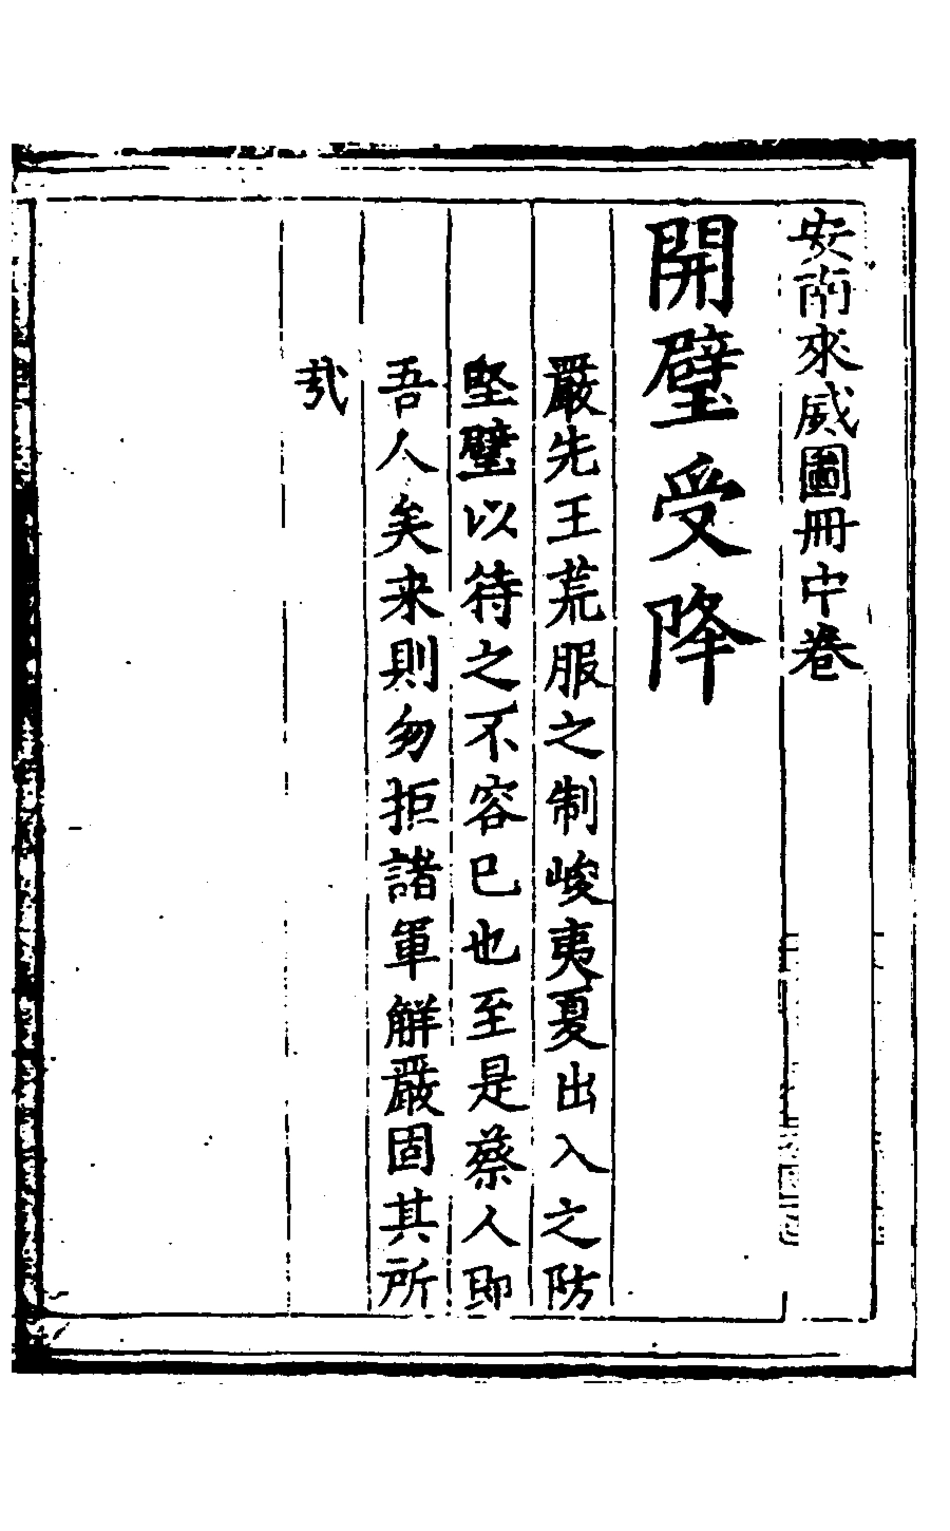 安南來威圖冊中卷
開壁受降
嚴先王荒服之制峻夷夏出入之防
堅壁以待之不容已也至是蔡人即
吾人矣来則勿拒諸軍解嚴固其所
哉